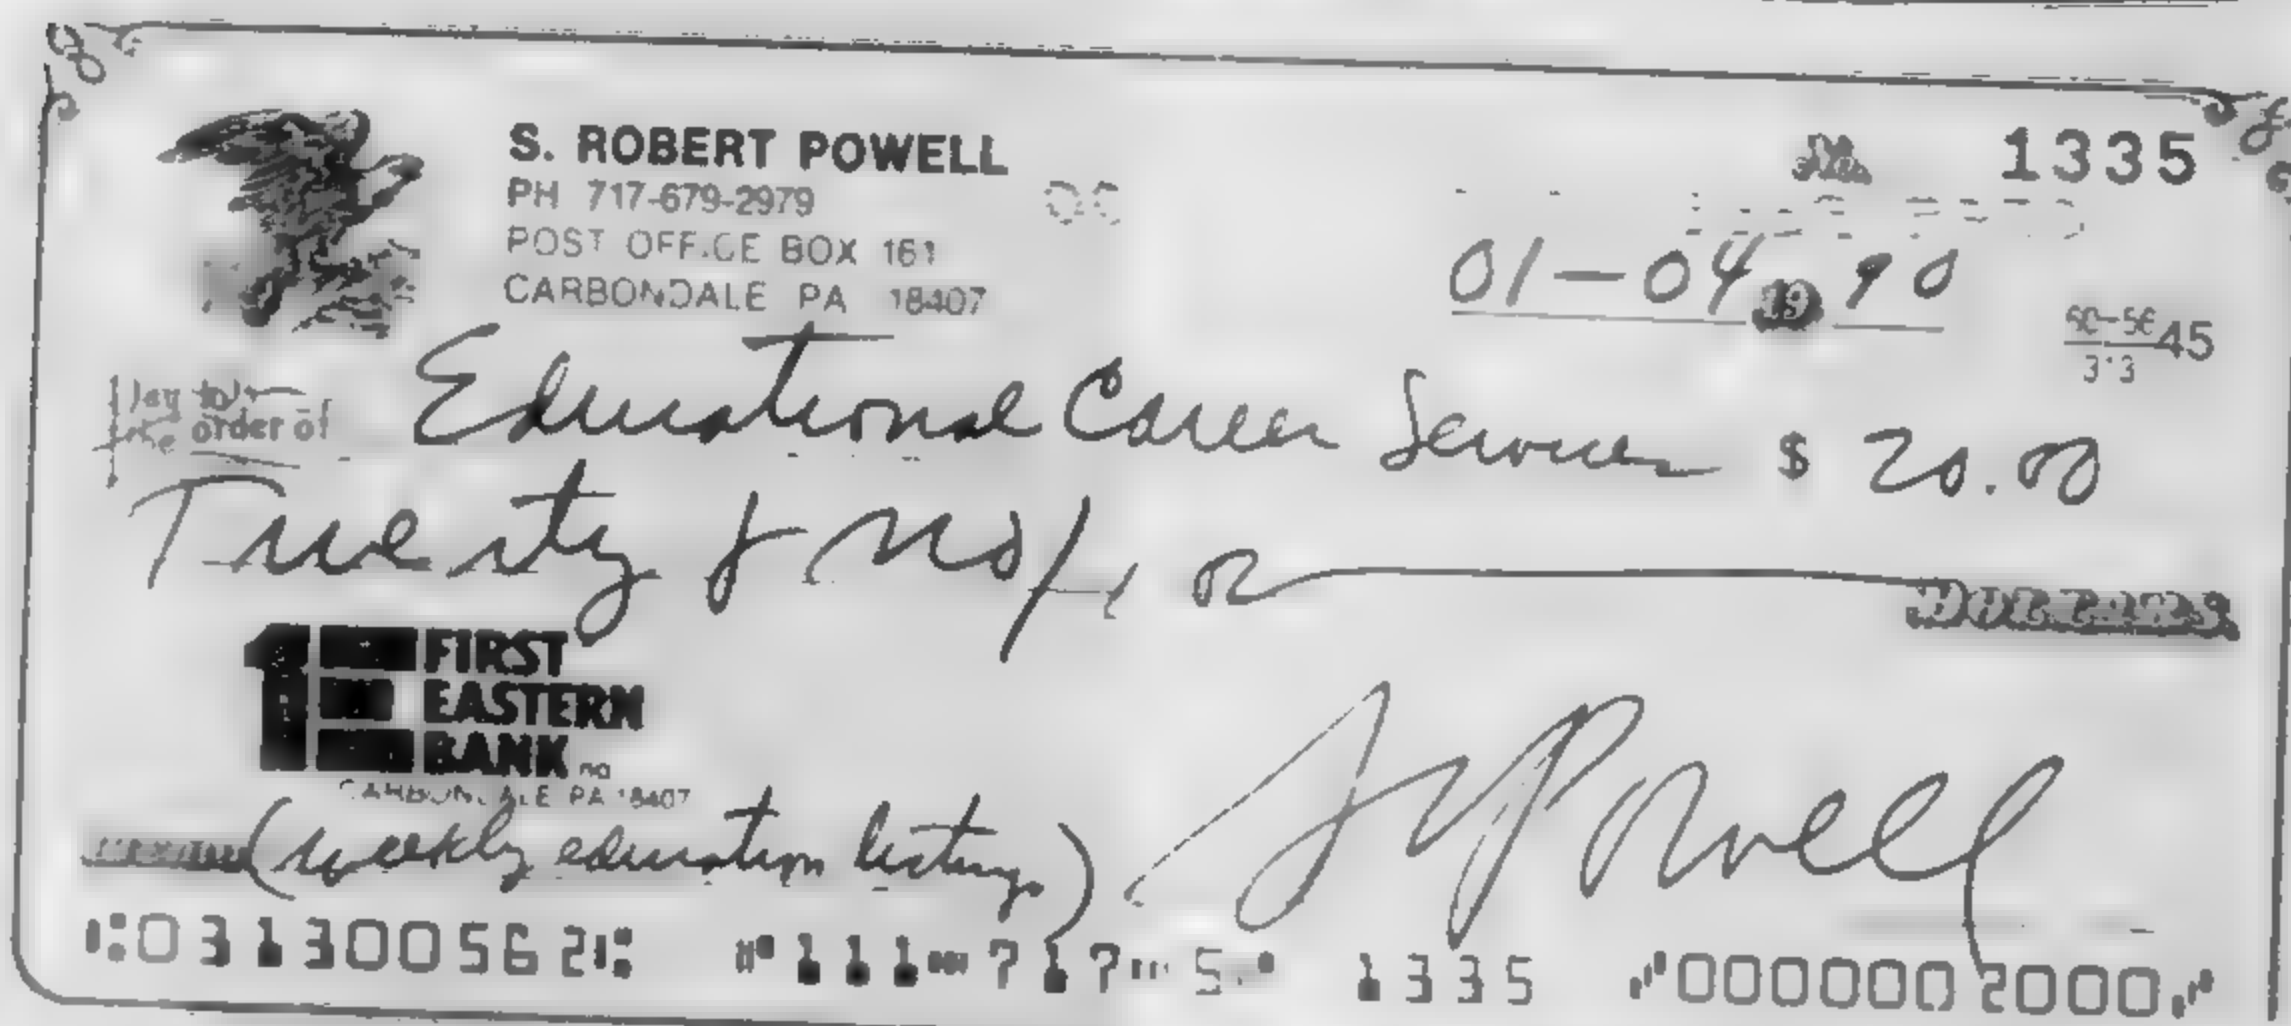 1335
S. ROBERT POWELL
PH 717-679-2979
POST OFFICE BOX 161
CARBONDALE PA 18407
01-04 19 90
60-56 45
313
Pay to the order of Educational Career Services $ 20.00
Twenty & no/ DOLLARS
FIRST
EASTERN
BANK na
CARBONDALE PA 18407
(weekly education listings) S R Powell
⑆031300562⑆ ⑈111⑉717⑉5⑈ 1335 ⑈0000002000⑈